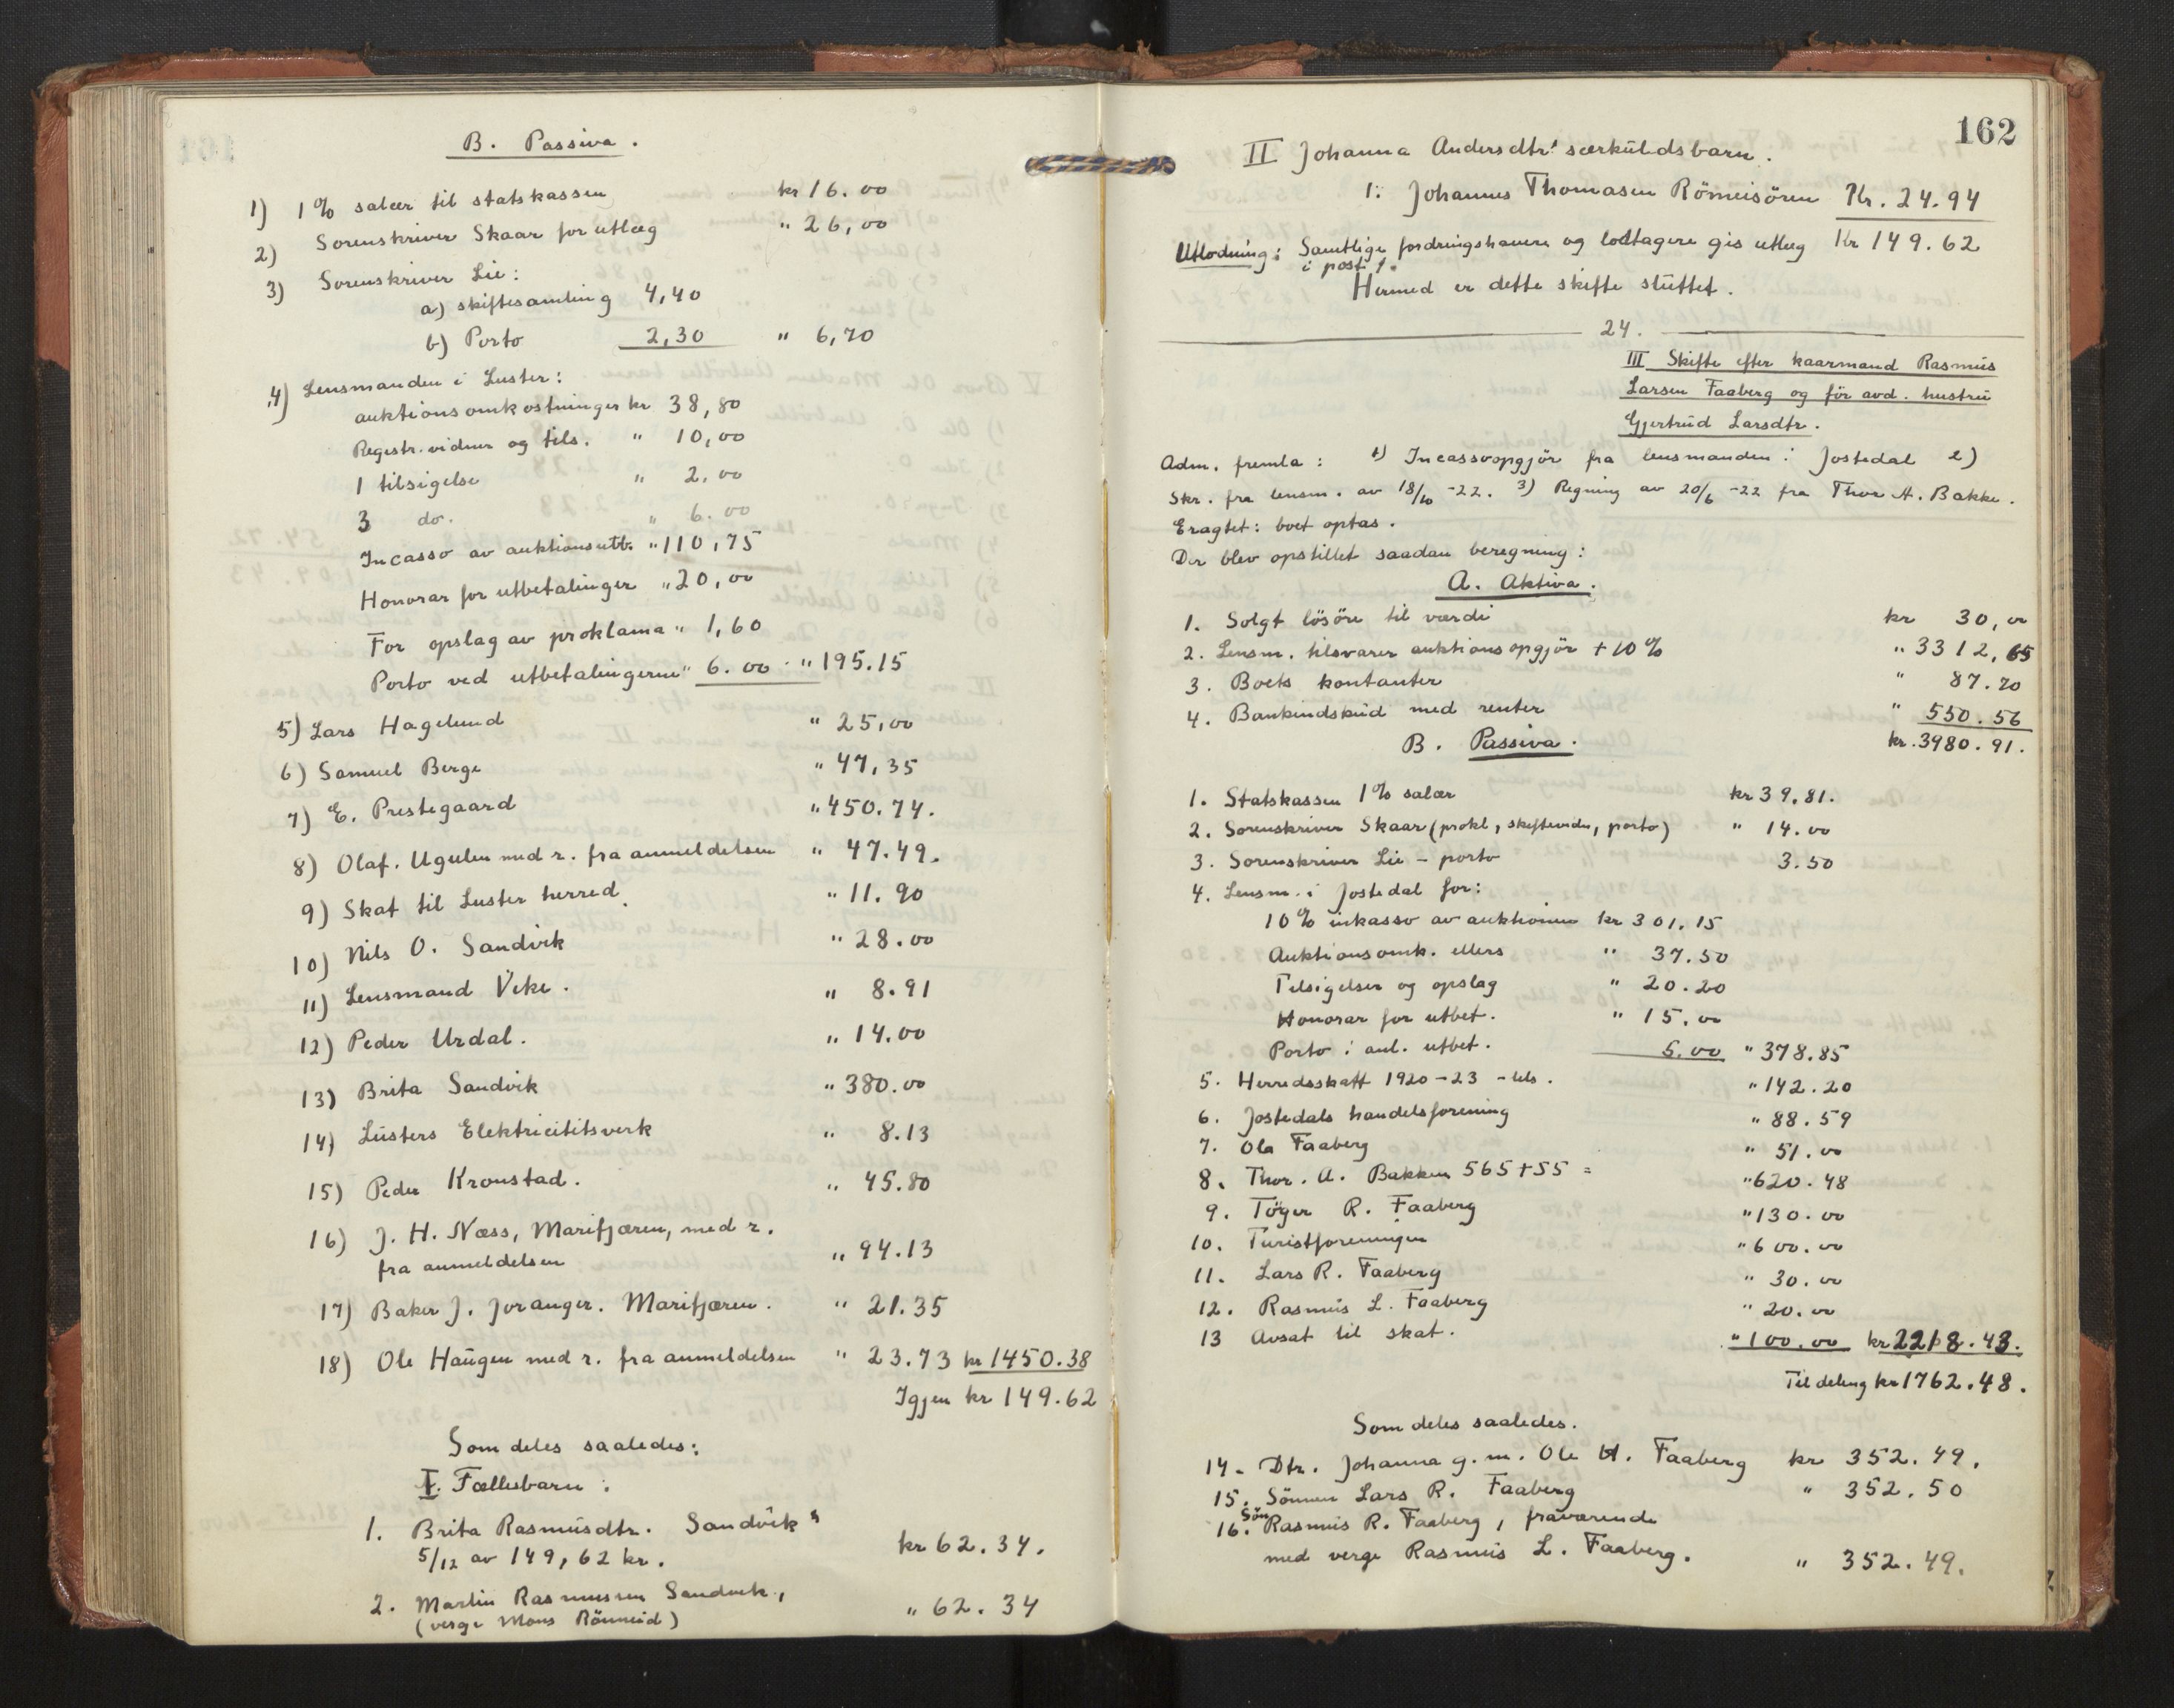 B. Passiva.
1) 1% salær til statskassen kr 16.00
2) Sorenskriver Skaar for utlæg " 26,00
3) Sorenskriver Lie:
a) skiftesamling 4,40
b) Porto 2,30 " 6,70
4) Lensmanden i Luster:
auktionsomkostninger kr 38,80
Registr. vidner og tils. " 10,00
1 tilsigelse " 2,00
3 do. " 6.00
Incasso av auktionsutb. " 110,75
Honorar for utbetalinger " 20,00
For opslag av proklama " 1,60
Porto ved utbetalingerne " 6.00 " 195.15
5) Lars Hagelund " 25,00
6) Samuel Berge " 47,35
7) E. Prestegaard " 450.74.
8) Olaf. Ugulen med r. fra anmeldelsen " 47.49.
9) Skat til Luster herred. " 11.90
10) Nils O. Sandvik " 28.00
11) Lensmand Vike. " 8.91
12) Peder Urdal. " 14.00
13) Brita Sandvik " 380.00
14) Lusters Elektricititsverk " 8.13
15) Peder Kronstad. " 45.80
16) J. H. Næss, Marifjæren, med r.
fra anmeldelsen " 94.13
17) Baker J. Joranger. Marifjæren. " 21.35
18) Ole Haugen med r. fra anmeldelsen " 23.73 kr 1450.38
Igjen kr 149.62
Som deles saaledes:
I. Fællesbarn:
1. Brita Rasmusdtr. Sandvik
5/12 av 149,62 kr. kr 62.34.
2. Martin Rasmussen Sandvik,
(verge Mons Rönneid) " 62.34
162
II Johanna Andersdtrs særkuldsbarn.
1. Johannes Thomasen Römeisören Kr. 24.94
Utlodning: Samtlige fordringshavere og lodtagere gis utlæg Kr 149.62
i post 1.
Hermed er dette skifte sluttet.
24.
III Skifte efter kaarmand Rasmus
Larsen Faaberg og för avd. hustru
Gjertrud Larsdtr.
Adm. fremla: 1) Incassoopgjör fra lensmanden i Jostedal 2)
Skr. fra lensm. av 18/10 -22. 3) Regning av 20/6 -22 fra Thor A. Bakke.
Eragtet: boet optas.
Der blev opstillet saadan beregning:
A. Aktiva.
1. Solgt lösöre til værdi kr 30,00
2. Lensm. tilsvarer auktionsopgjör + 10% " 3312,65
3. Boets kontanter " 87.70
4. Bankindskud med renter " 550.56
B. Passiva. kr. 3980.91.
1. Statskassen 1% salær kr 39.81.
2. Sorenskriver Skaar (prokl, skiftevidn, porto) " 14.00
3. Sorenskriver Lie - porto 3.50
4. Lensm. i Jostedal for:
10% inkasso av auktionen kr 301.15
Auktionsomk. ellers " 37.50
Tilsigelser og opslag " 20.20
Honorar for utbet. " 15.00
Porto i anl. utbet. 5.00 " 378.85
5. Herredsskatt 1920-23 - tils. " 142.20
6. Jostedals handelsforening " 88.59
7. Ola Faaberg " 51.00
8. Thor. A. Bakken 565+55 = " 620.48
9. Töger R. Faaberg " 130.00
10. Turistforeningen " 600.00
11. Lars R. Faaberg " 30.00
12. Rasmus L. Faaberg " 20.00
13 Avsat til skat. " 100.00 kr 2218.43.
Til deling kr 1762.48.
Som deles saaledes.
14. Dtr. Johanna g.m. Ole A. Faaberg kr 352.49.
15. Sönnen Lars R. Faaberg " 352.50
16. Sön Rasmus R. Faaberg, fraværende
med verge Rasmus L. Faaberg. " 352.49.